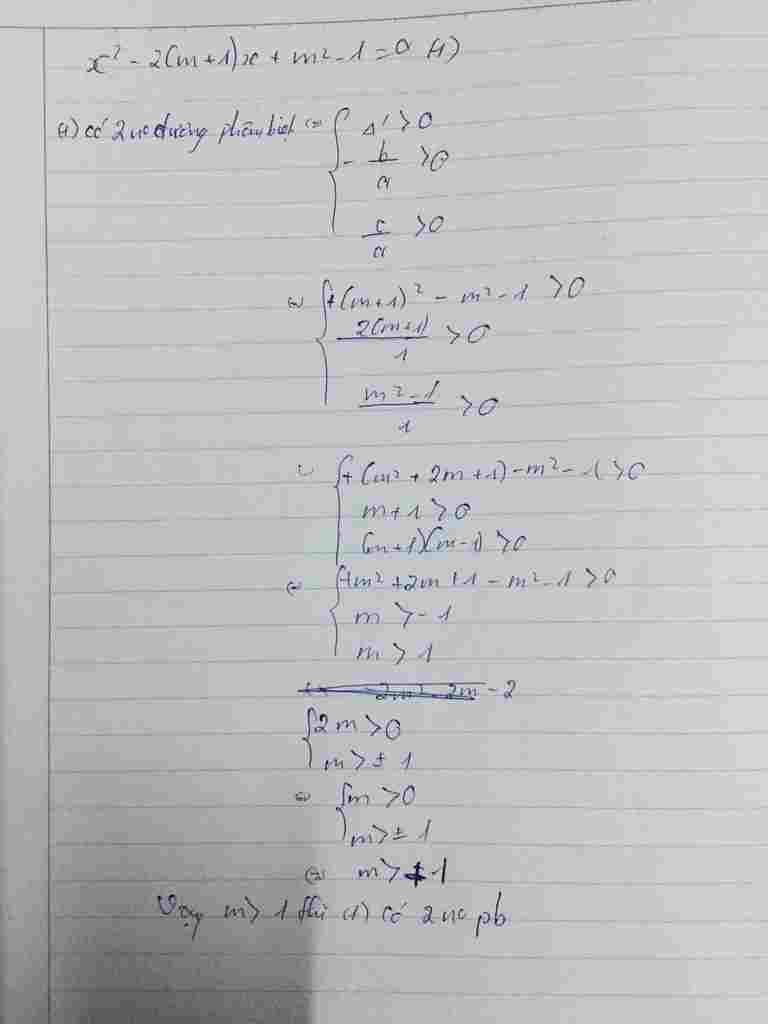 x² - 2(m+1)x + m² - 1 = 0 (1)
(1) có 2 no dương phân biệt (=) { Δ' > 0
- b/a > 0
c/a > 0
(=) { +(m+1)² - m² - 1 > 0
2(m+1)/1 > 0
m² - 1/1 > 0
{ +(m² + 2m + 1) - m² - 1 > 0
m + 1 > 0
(m+1)(m-1) > 0
(=) { +m² + 2m + 1 - m² - 1 > 0
m > -1
m > 1
2m² - 2m - 2
{ 2m > 0
m > ± 1
(=) { m > 0
m > ± 1
(=) m > 1
Vậy m > 1 thì (1) có 2 no pb